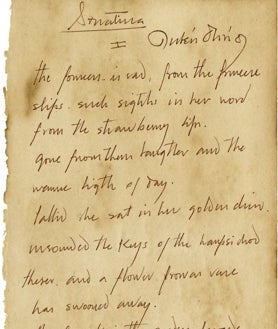 Sonatina
II
Rubén Darío
the princess is sad, from the princess
slips such sights in her word
from the strawberry lips.
gone from them laughter and the
warme ligth of day.
Pallid she sat in her golden
unsounded the keys of the harpsichord
theser, and a flower, from a vase
has swooned away.